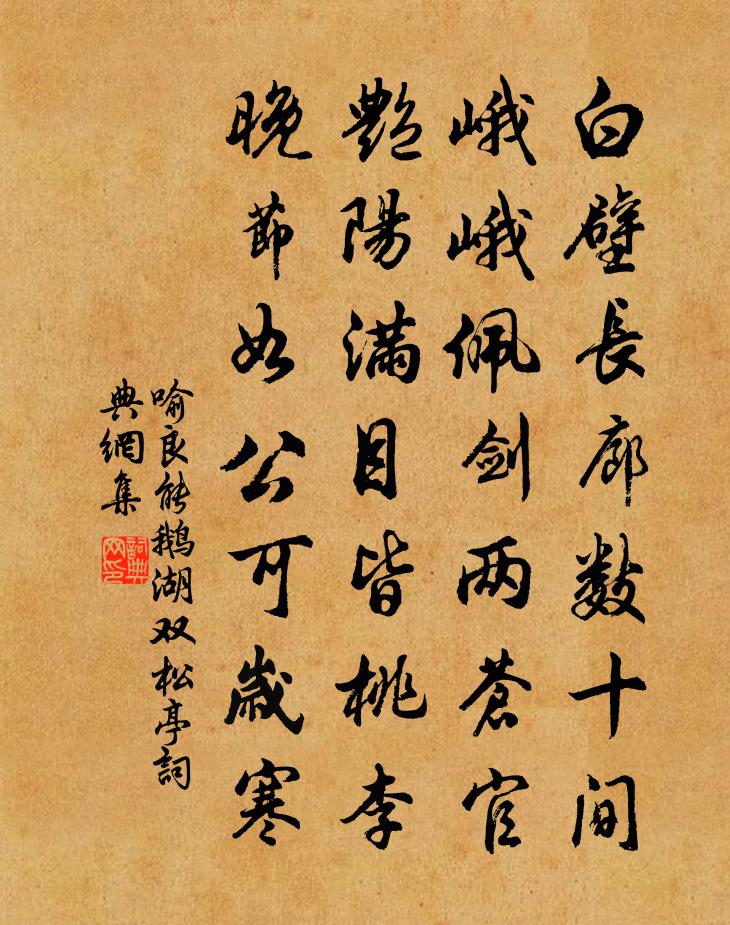 白壁長廊數十间
峨峨佩剑两蒼官
艷陽滿目皆桃李
晚節如公可歲寒
喻良能鵝湖双松亭詞
典網集
詞典網印